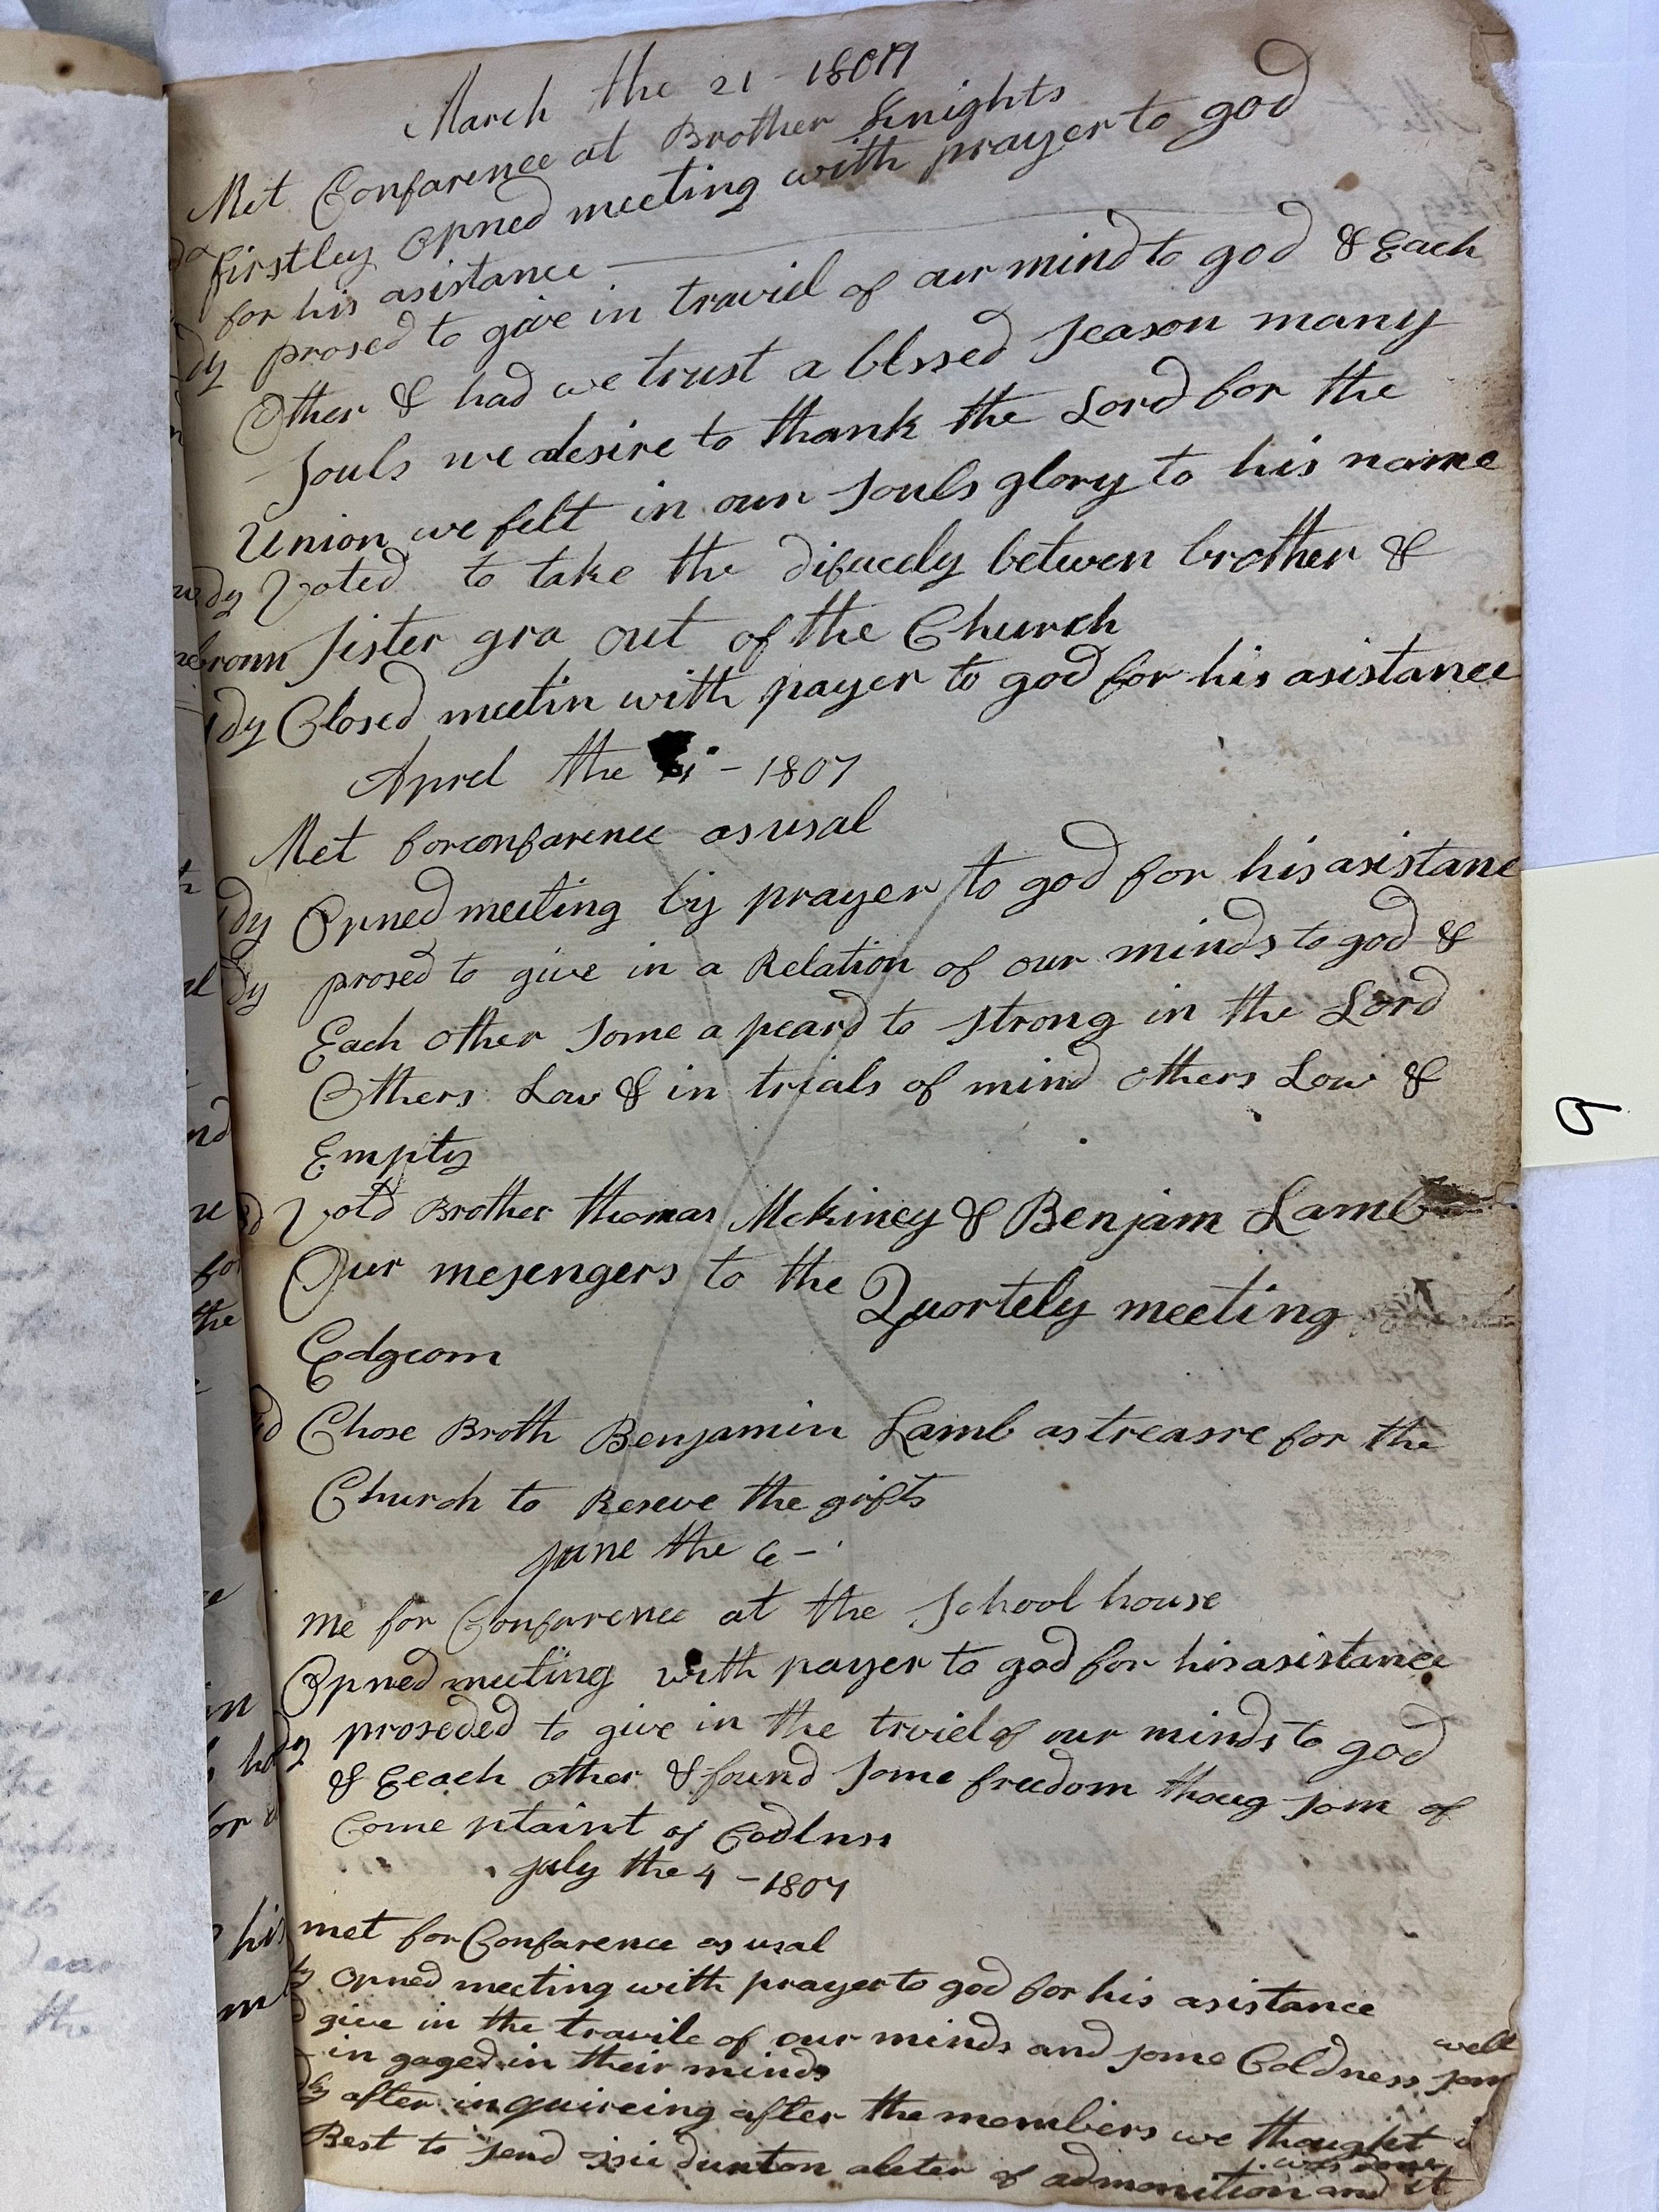 March the 21 - 1807
Met Confarence at Brother Knights
firstley Opned meeting with prayer to god
for his asistance
dy prosed to give in traviel of aur mind to god & Each
Other & had we trust a blssed season many
souls we desire to thank the Lord for the
Union we felt in our souls glory to his name
dy Voted to take the difucely betwen brother &
sister gra out of the Church
dy Closed meetin with payer to god for his asistance
Aprel the - 1807
Met for confarence as usal
dy Opned meeting by prayer to god for his asistanc
dy prosed to give in a Relation of our minds to god &
Each other some a peard to strong in the Lord
Others Low & in trials of mind others Low &
Empty
Votd Brother thomas Mckiney & Benjam Lamb
Our mesengers to the Quortely meeting
Edgcom
Chose Broth Benjamin Lamb as treasre for the
Church to Reseve the gifts
june the 6 -
me for Confarence at the school house
Opned meeting with payer to god for his asistance
proseded to give in the traiel of our minds to god
& Eeach other & found some freedom thoug som of
Come ptaint of Codlnss
july the 4 - 1807
met for Confarence as usal
opned meeting with prayer to god for his asistance
give in the travile of our minds and some Coldness som well
in gaged in their minds
after inquireing after the members we thought
Best to send dunton aleter of admonition and it
was
9